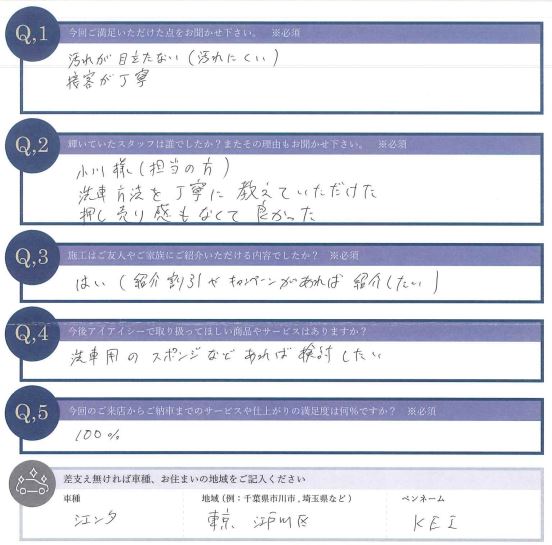 Q,1 今回ご満足いただけた点をお聞かせ下さい。 ※必須
汚れが目立たない(汚れにくい)
接客が丁寧
Q,2 輝いていたスタッフは誰でしたか?またその理由もお聞かせ下さい。 ※必須
小川様(担当の方)
洗車方法を丁寧に教えていただけた
押し売り感もなくて良かった
Q,3 施工はご友人やご家族にご紹介いただける内容でしたか? ※必須
はい(紹介割引やキャンペーンがあれば紹介したい)
Q,4 今後アイアイシーで取り扱ってほしい商品やサービスはありますか?
洗車用のスポンジなどあれば検討したい
Q,5 今回のご来店からご納車までのサービスや仕上がりの満足度は何%ですか? ※必須
100%
差支え無ければ車種、お住まいの地域をご記入ください
車種 地域(例:千葉県市川市,埼玉県など) ペンネーム
東京、江戸川区 KEI